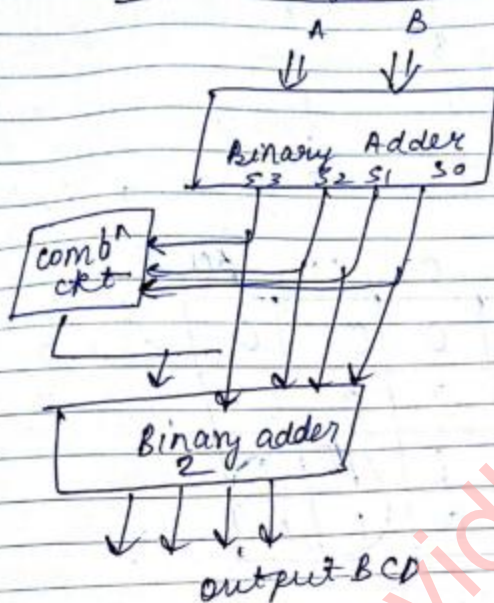 A B
Binary Adder
S3 S2 S1 S0
comb^n
ckt
Binary adder
2
output BCD